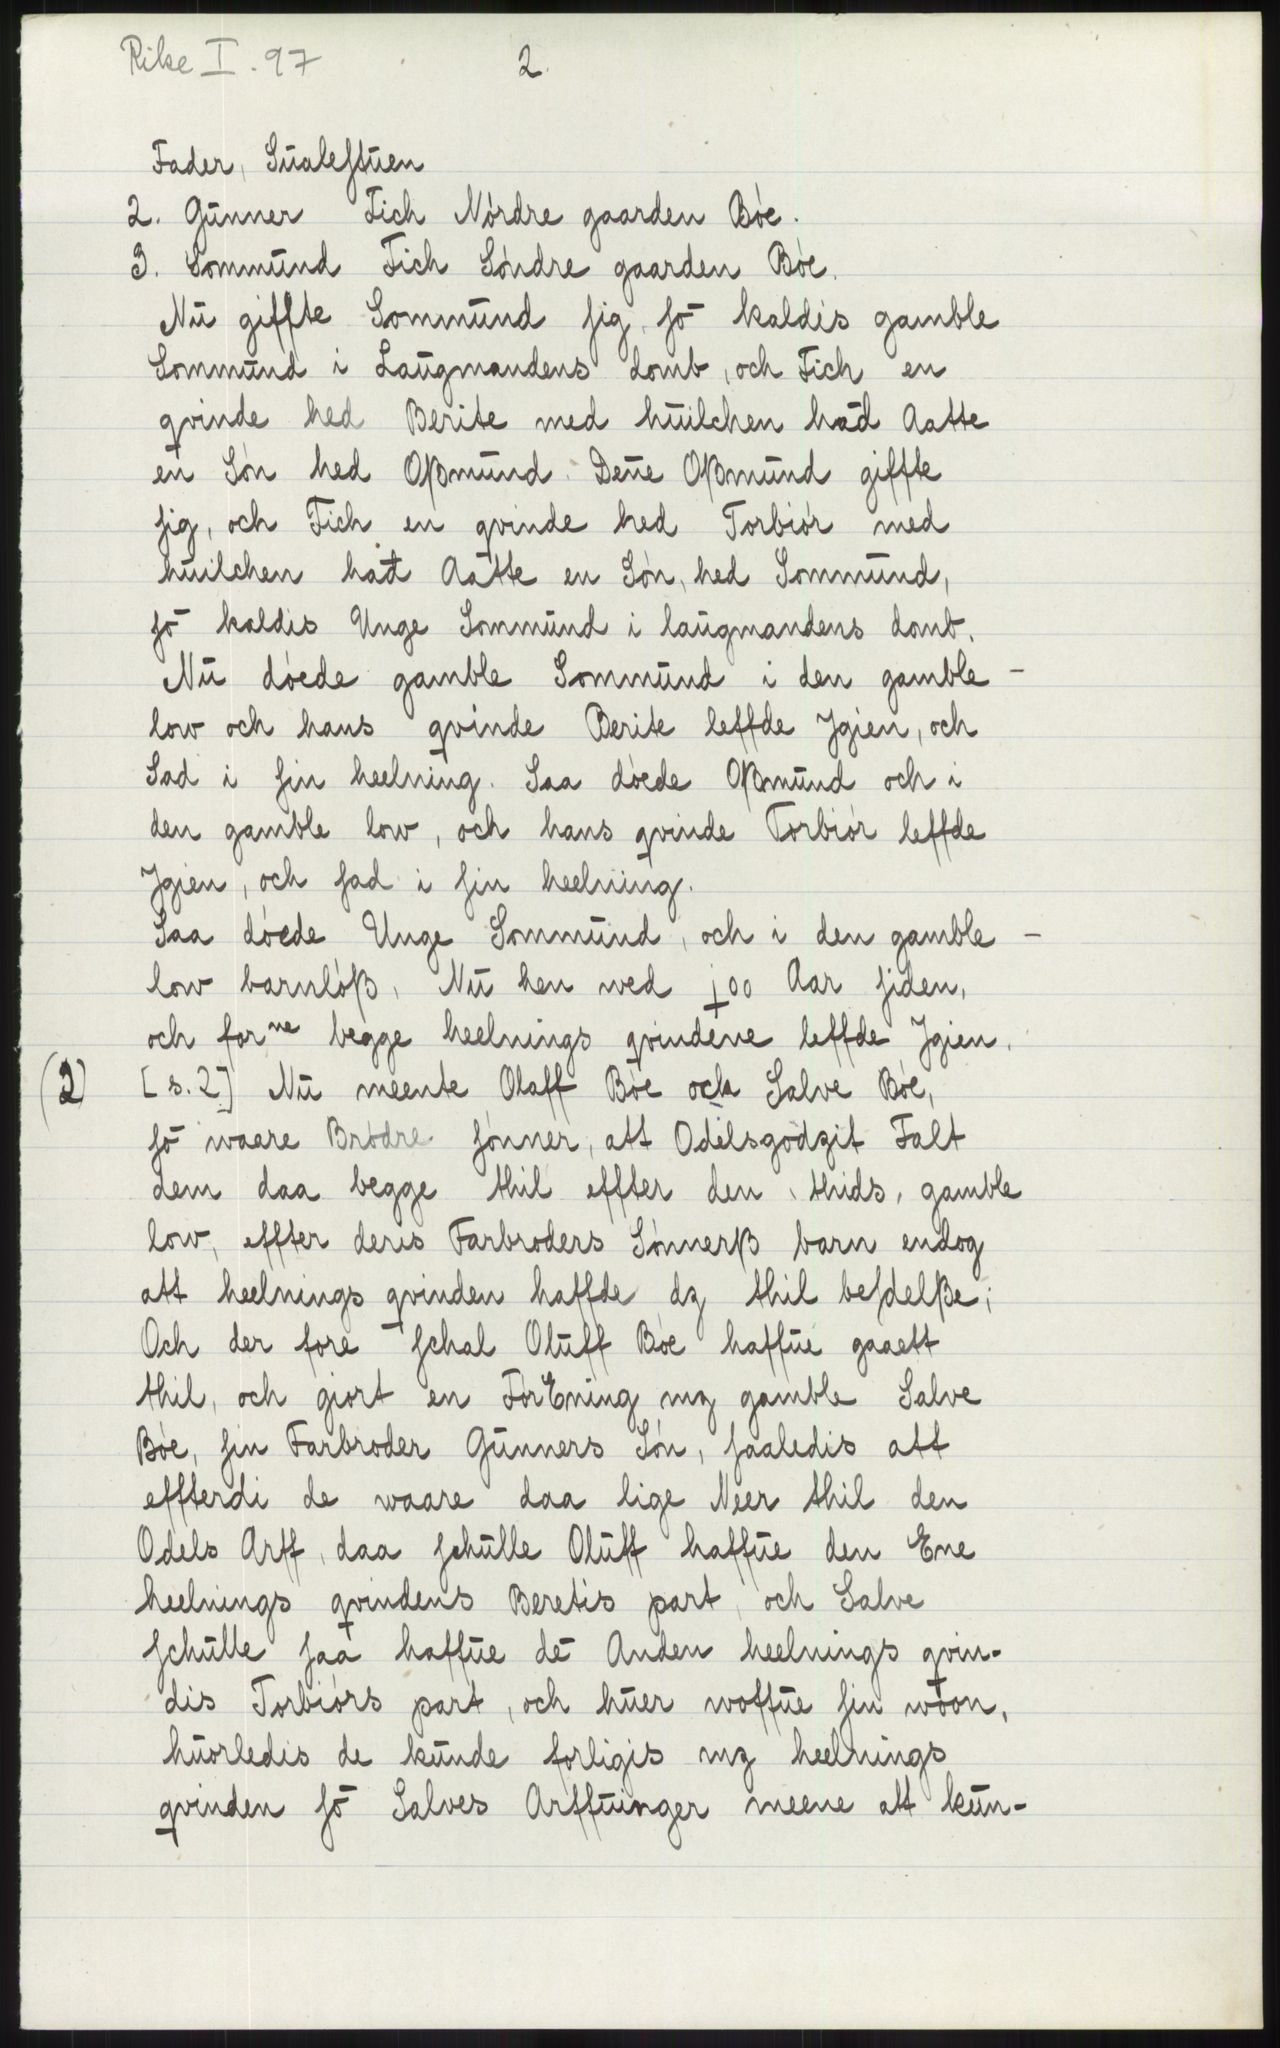 Rike I. 97
2.
Fader, Sŭalestŭen
2. Gŭnner Fich Nórdre gaarden Bóe.
3. Sommŭnd Fich Sóndre gaarden Bóe.
Nŭ giffte Sommŭnd sig, sō kaldis gamble
Sommŭnd i Laŭgmandens domb, och Fich en
qvinde hed Berite med hŭilchen had Aatte
en Són hed Oßmŭnd. Dēne Oßmŭnd giffte
sig, och Fich en qvinde hed Torbiór med
hŭilchen had Aatte en Són, hed Sommŭnd,
sō kaldis Unge Sommŭnd i laŭgmandens domb.
Nŭ dóede gamble Sommŭnd i den gamble -
low och hans qvinde Berite leffde Jgien, och
Sad i sin heelning. Saa dóede Oßmŭnd och i
den gamble low, och hans qvinde Torbiór leffde
Jgien, och sad i sin heelning.
Saa dóede Unge Sommŭnd, och i den gamble -
low barnlóß, Nŭ hen wed j00 Aar siden,
och forⁿᵉ begge heelnings qvindene leffde Jgien.
(2) [s. 2] Nŭ meente Olaff Bóe och Salve Bóe,
sō waare Brødre sónner, att Odelsgodzit Falt
dem daa begge thil effter den thids, gamble
low, effter deris Farbroders Sónnerß barn endog
att heelnings qvinden haffde dz thil besdelße;
Och der fore schal Olŭff Bóe haffŭe gaaett
thil, och giort en ForEning mz gamble Salve
Bóe, sin Farbroder Gŭnners Són, saaledis att
effterdi de waare daa lige Neer thil den
Odels Arff, daa schŭlle Olŭff haffŭe den Ene
heelnings qvindens Beretis part, och Salve
schŭlle saa haffŭe dē Anden heelnings qvin-
dis Torbiórs part, och hŭer woffŭe sin woon,
hŭorledis de kŭnde forligis mz heelnings
qvinden sō Salves Arffŭinger meene att kŭn-